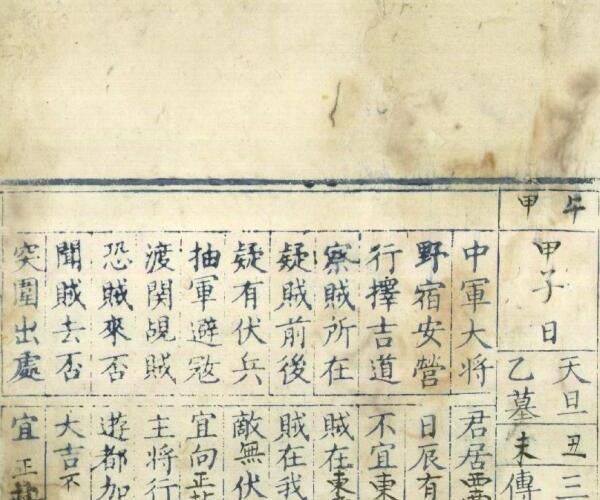 午甲
甲子日
天旦丑三
乙墓未傳
中軍大将
君居西
野宿安營
日辰有
行擇吉道
不宜東
察賊所在
賊在東
疑賊前後
賊在我
疑有伏兵
敵無伏
抽軍避寇
宜向正
渡関覘賊
主将行
恐賊來否
遊都加
聞賊去否
大吉不
突圍出處
宜正